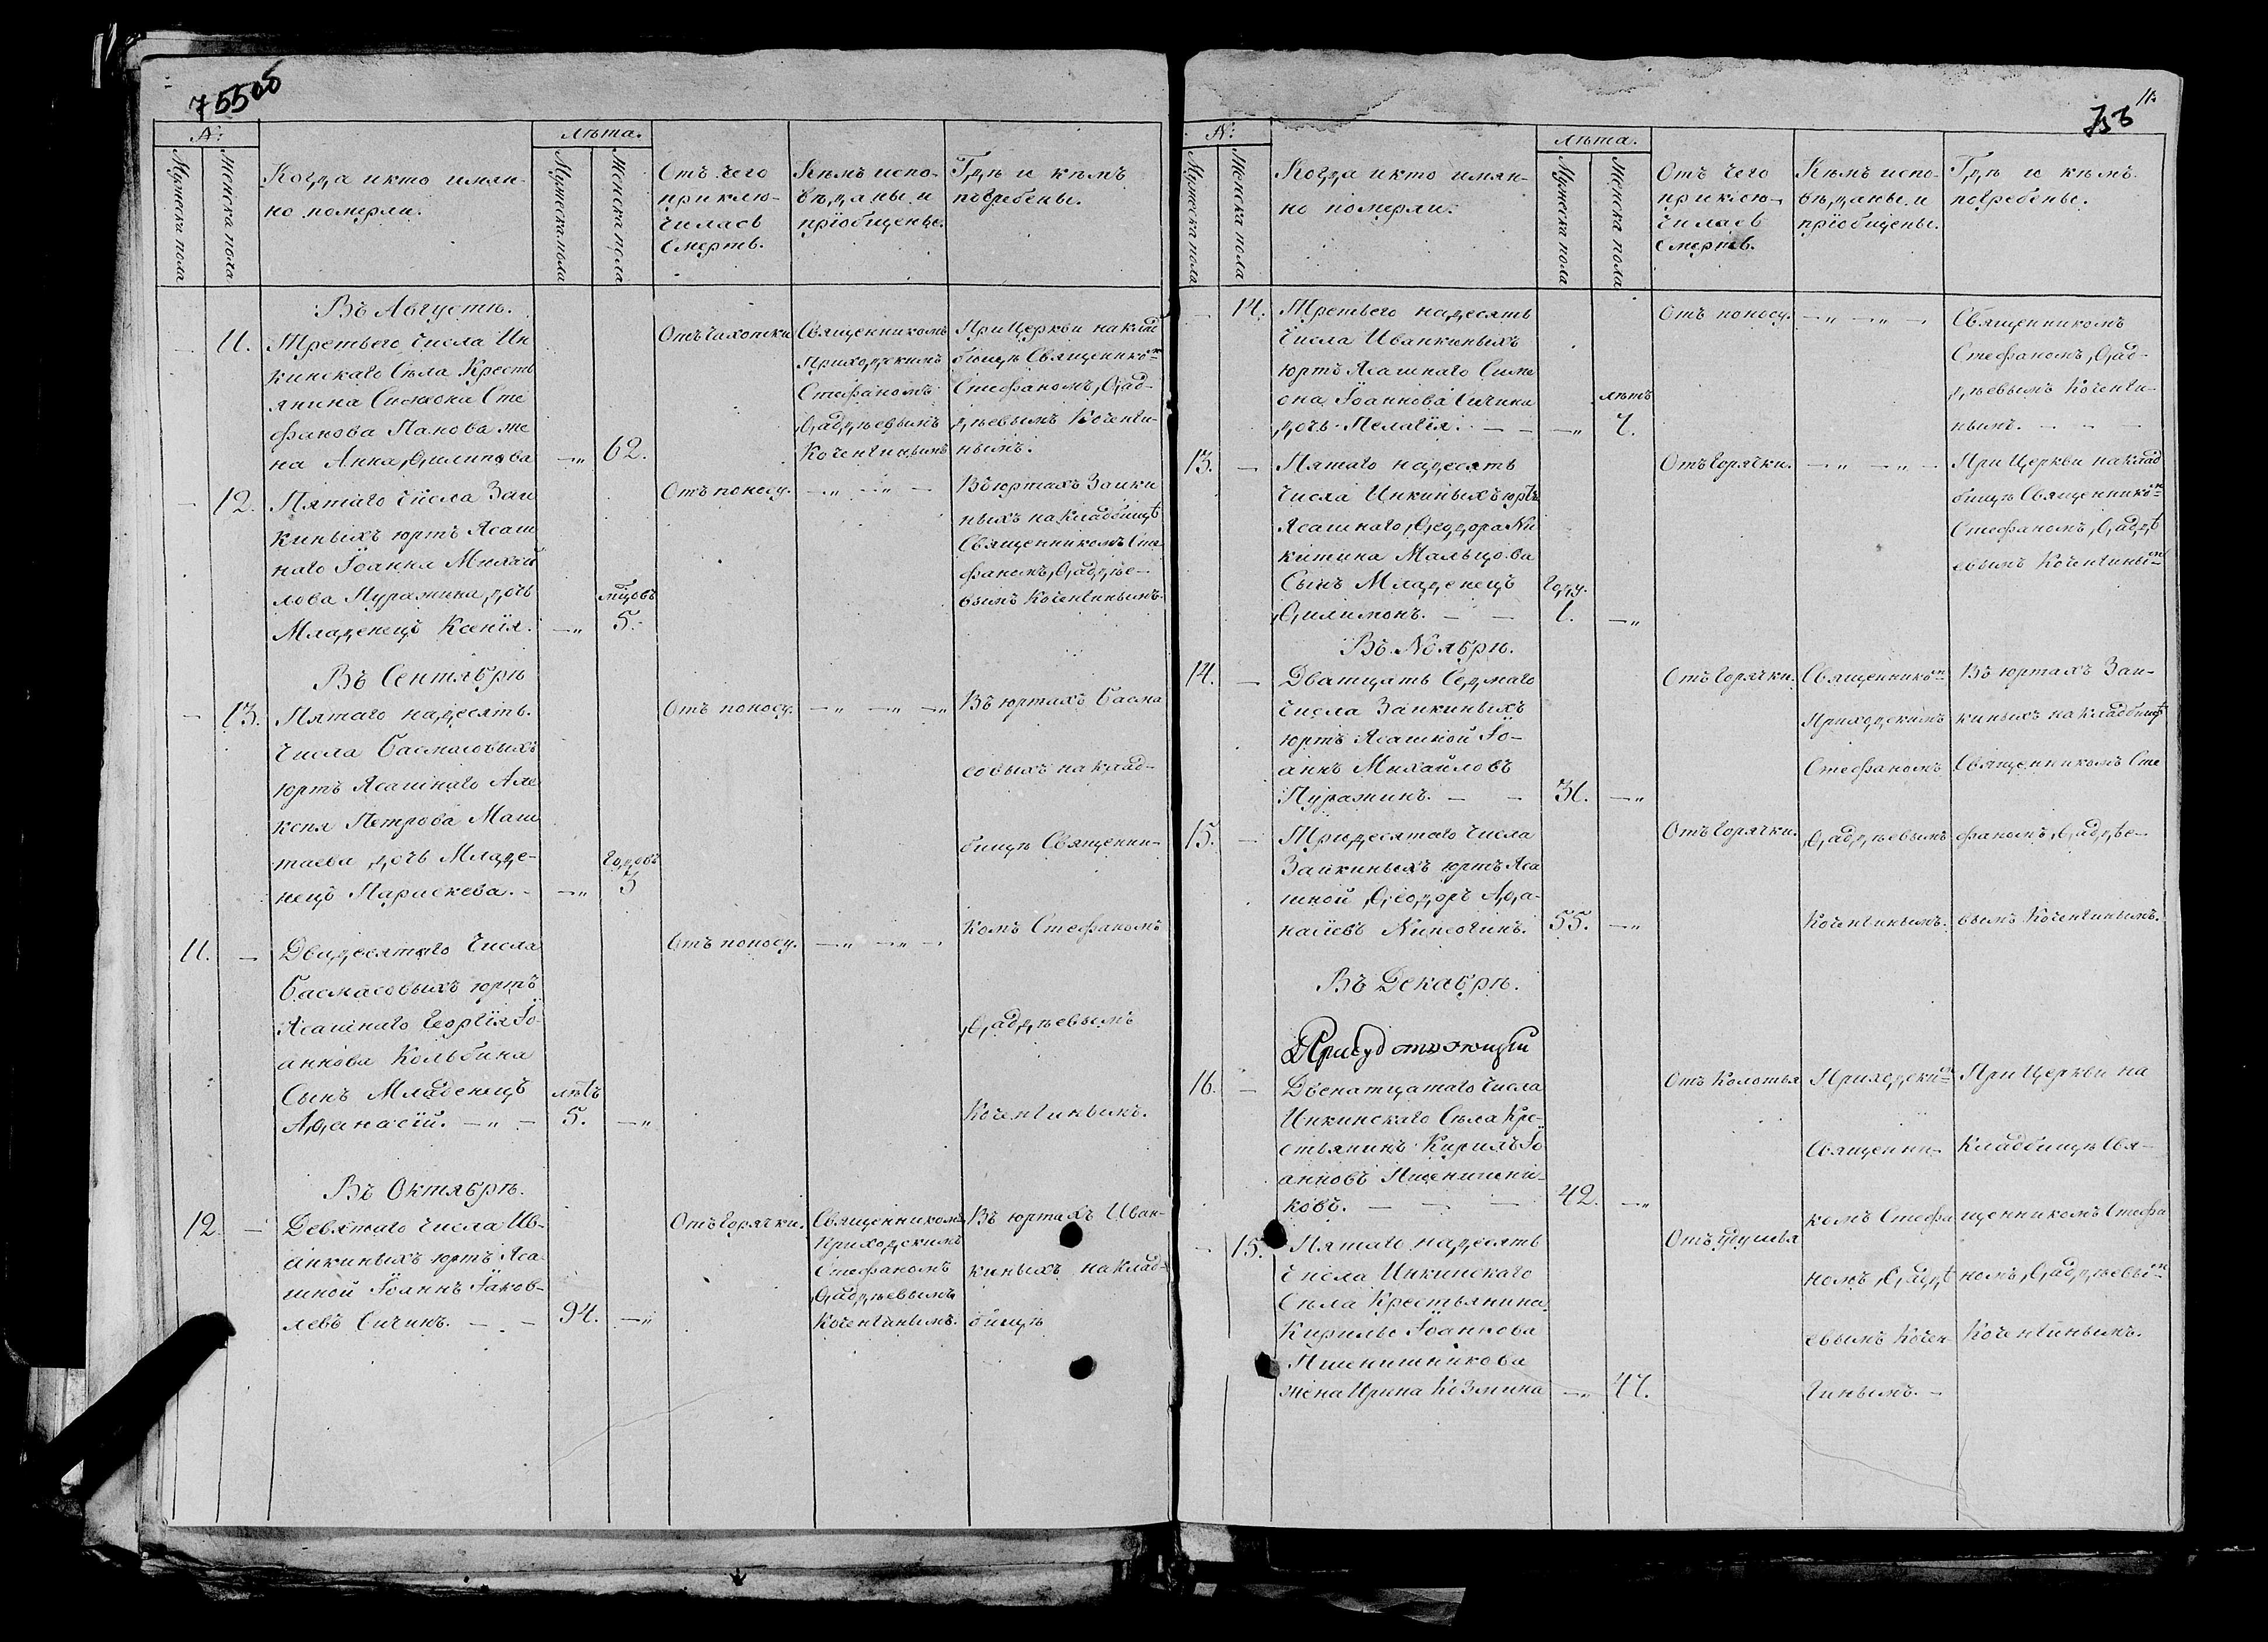 755об
№:
Мужеска пола
Женска пола
Когда и кто имян-
но померли.
лѣта.
Мужеска пола
Женска пола
Отъ чего
приклю-
чилась
смерть.
Кѣмъ испо-
вѣданы и
прїобщены.
Гдѣ и кѣмъ
погребены.
Въ Августѣ.
11.
Третьего числа Ин
кинскаго Села Кресть
янина Симеона Сте
фанова Панова же
на Анна Ѳилипова
62.
Отъ чахотки
Священникомъ
Приходскимъ
Стефаномъ
Ѳаддѣевымъ
Коченгинымъ
При Церкви на клад
бищѣ Священником
Стефаномъ Ѳад-
дѣевымъ Коченги-
нымъ.
12.
Пятаго числа Заи
киныхъ юртъ Ясаш
наго Іоанна Михай
лова Пуражина дочь
Младенецъ Ксенїя.
мцовъ
5.
Отъ поносу.
Въ юртахъ Заики
ныхъ на кладбищѣ
Священникомъ Сте
фаномъ Ѳаддѣе-
вымъ Коченгинымъ.
Въ Сентябрѣ
13.
Пятаго надесять
числа Басмасовыхъ
юртъ Ясашнаго Але
ксѣя Петрова Маш
таева дочь Младе-
нецъ Параскева.
годовъ
3
Отъ поносу.
Въ юртахъ Басма
совыхъ на клад-
бищѣ Священни-
комъ Стефаномъ
Ѳаддѣевымъ
Коченгинымъ.
11.
Двадесятаго числа
Басмасовыхъ юртъ
Ясашнаго Георгїя Іо-
аннова Кольбина
Сынъ Младенецъ
Аѳанасїй.
лѣтъ
5.
Отъ поносу.
Въ Октябрѣ.
12.
Девятаго числа Ив-
анкиныхъ юртъ Яса-
шной Іоаннъ Іаков-
левъ Сичинъ.
94.
Отъ горячки.
Священникомъ
Приходскимъ
Стефаномъ
Ѳаддѣевымъ
Коченгинымъ.
Въ юртахъ Иван-
киныхъ на клад-
бищѣ
11.
756
№:
Мужеска пола
Женска пола
Когда и кто имян-
но померли.
лѣта.
Мужеска пола
Женска пола
Отъ чего
приклю-
чилась
смерть.
Кѣмъ испо-
вѣданы и
прїобщены.
Гдѣ и кѣмъ
погребены.
14.
Третьего надесять
числа Иванкиныхъ
юртъ Ясашнаго Симе
она Іоаннова Сичина
дочь Пелагїя.
лѣтъ
7.
Отъ поносу.
Священникомъ
Стефаномъ Ѳад-
дѣевымъ Коченги-
нымъ.
13.
Пятаго надесять
числа Инкиныхъ юртъ
Ясашнаго Ѳеодора Ни
китина Мальцова
Сынъ Младенецъ
Ѳилимонъ.
году.
1.
Отъ горячки.
При Церкви на клад
бищѣ Священником
Стефаномъ Ѳаддѣ
евымъ Коченгиным
Въ Ноябрѣ.
14.
Дватцать Седмаго
числа Заикиныхъ
юртъ Ясашной Іо-
аннъ Михайловъ
Пуражинъ.
31.
Отъ горячки.
Священником
Приходскимъ
Стефаномъ
Ѳаддѣевымъ
Коченгинымъ.
Въ юртахъ Заи-
киныхъ на кладбищѣ
Священникомъ Сте
фаномъ Ѳаддѣе-
вымъ Коченгинымъ.
15.
Тридесятаго числа
Заикиныхъ юртъ Яса
шной Ѳеодоръ Аѳа-
насїевъ
55.
Отъ горячки.
Въ Декабрѣ.
16.
Двенатцатаго числа
Инкинскаго Села Кре-
стьянинъ Кирилъ Іо
анновъ Пшенишни-
ковъ.
42.
Отъ колотья
Приходским
Священни-
комъ Стефа
номъ Ѳаддѣ
евымъ Кочен-
гинымъ.
При Церкви на
кладбищѣ Свя-
щенникомъ Стефа
номъ Ѳаддѣевым
Коченгинымъ.
15.
Пятаго надесять
числа Инкинскаго
Села Крестьянина
Кирилы Іоаннова
Пшенишникова
жена Ирина Козмина
47.
Отъ удушья